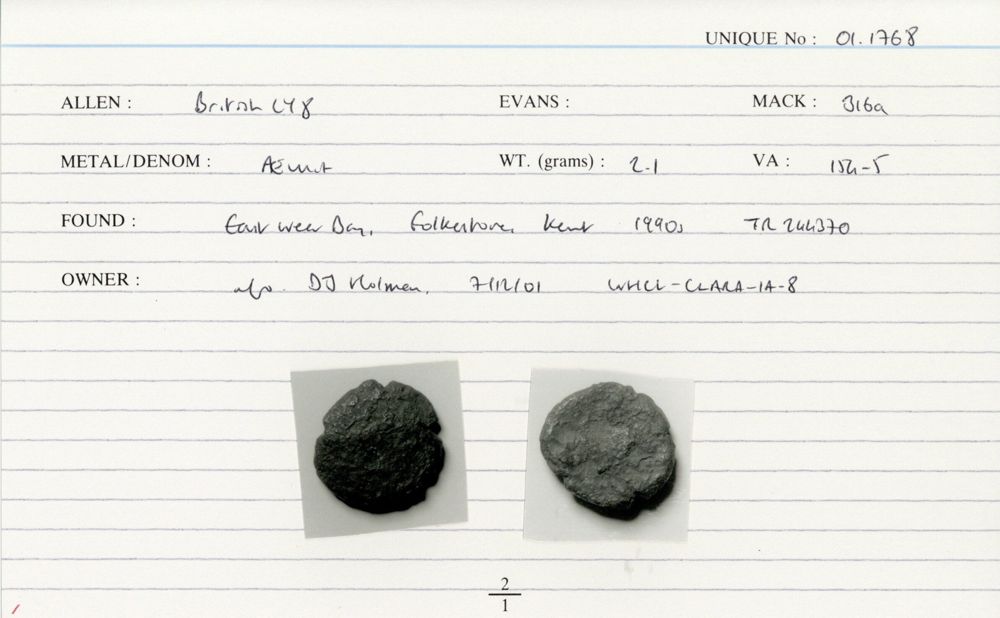 UNIQUE No : 01.1768
ALLEN : British LY8 EVANS : MACK : 316a
METAL/DENOM : AE unit WT. (grams) : 2.1 VA : 154-5
FOUND : East Wear Bay, Folkestone, Kent 1990s TR 244370
OWNER : DJ Holman, 7/12/01 WHCL-CLARA-IA-8
2
1